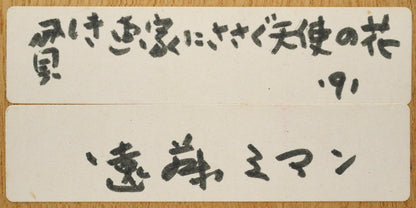 貧しき画家にささぐ天使の花
'91
遠藤ミマン